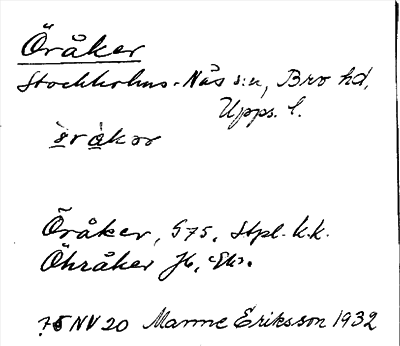 Öråker
Stockholms-Näs sn, Bro hd,
Upps. l.
Öråker, G75, Stpl. k.k.
Öhråker Jb, Ek.
75 NV 20 Manne Eriksson 1932